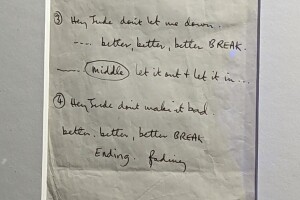 ③ Hey Jude don't let me down..
---- better, better, better BREAK.
—— middle let it out & let it in...
④ Hey Jude dont make it bad
better, better, better BREAK
Ending. fading